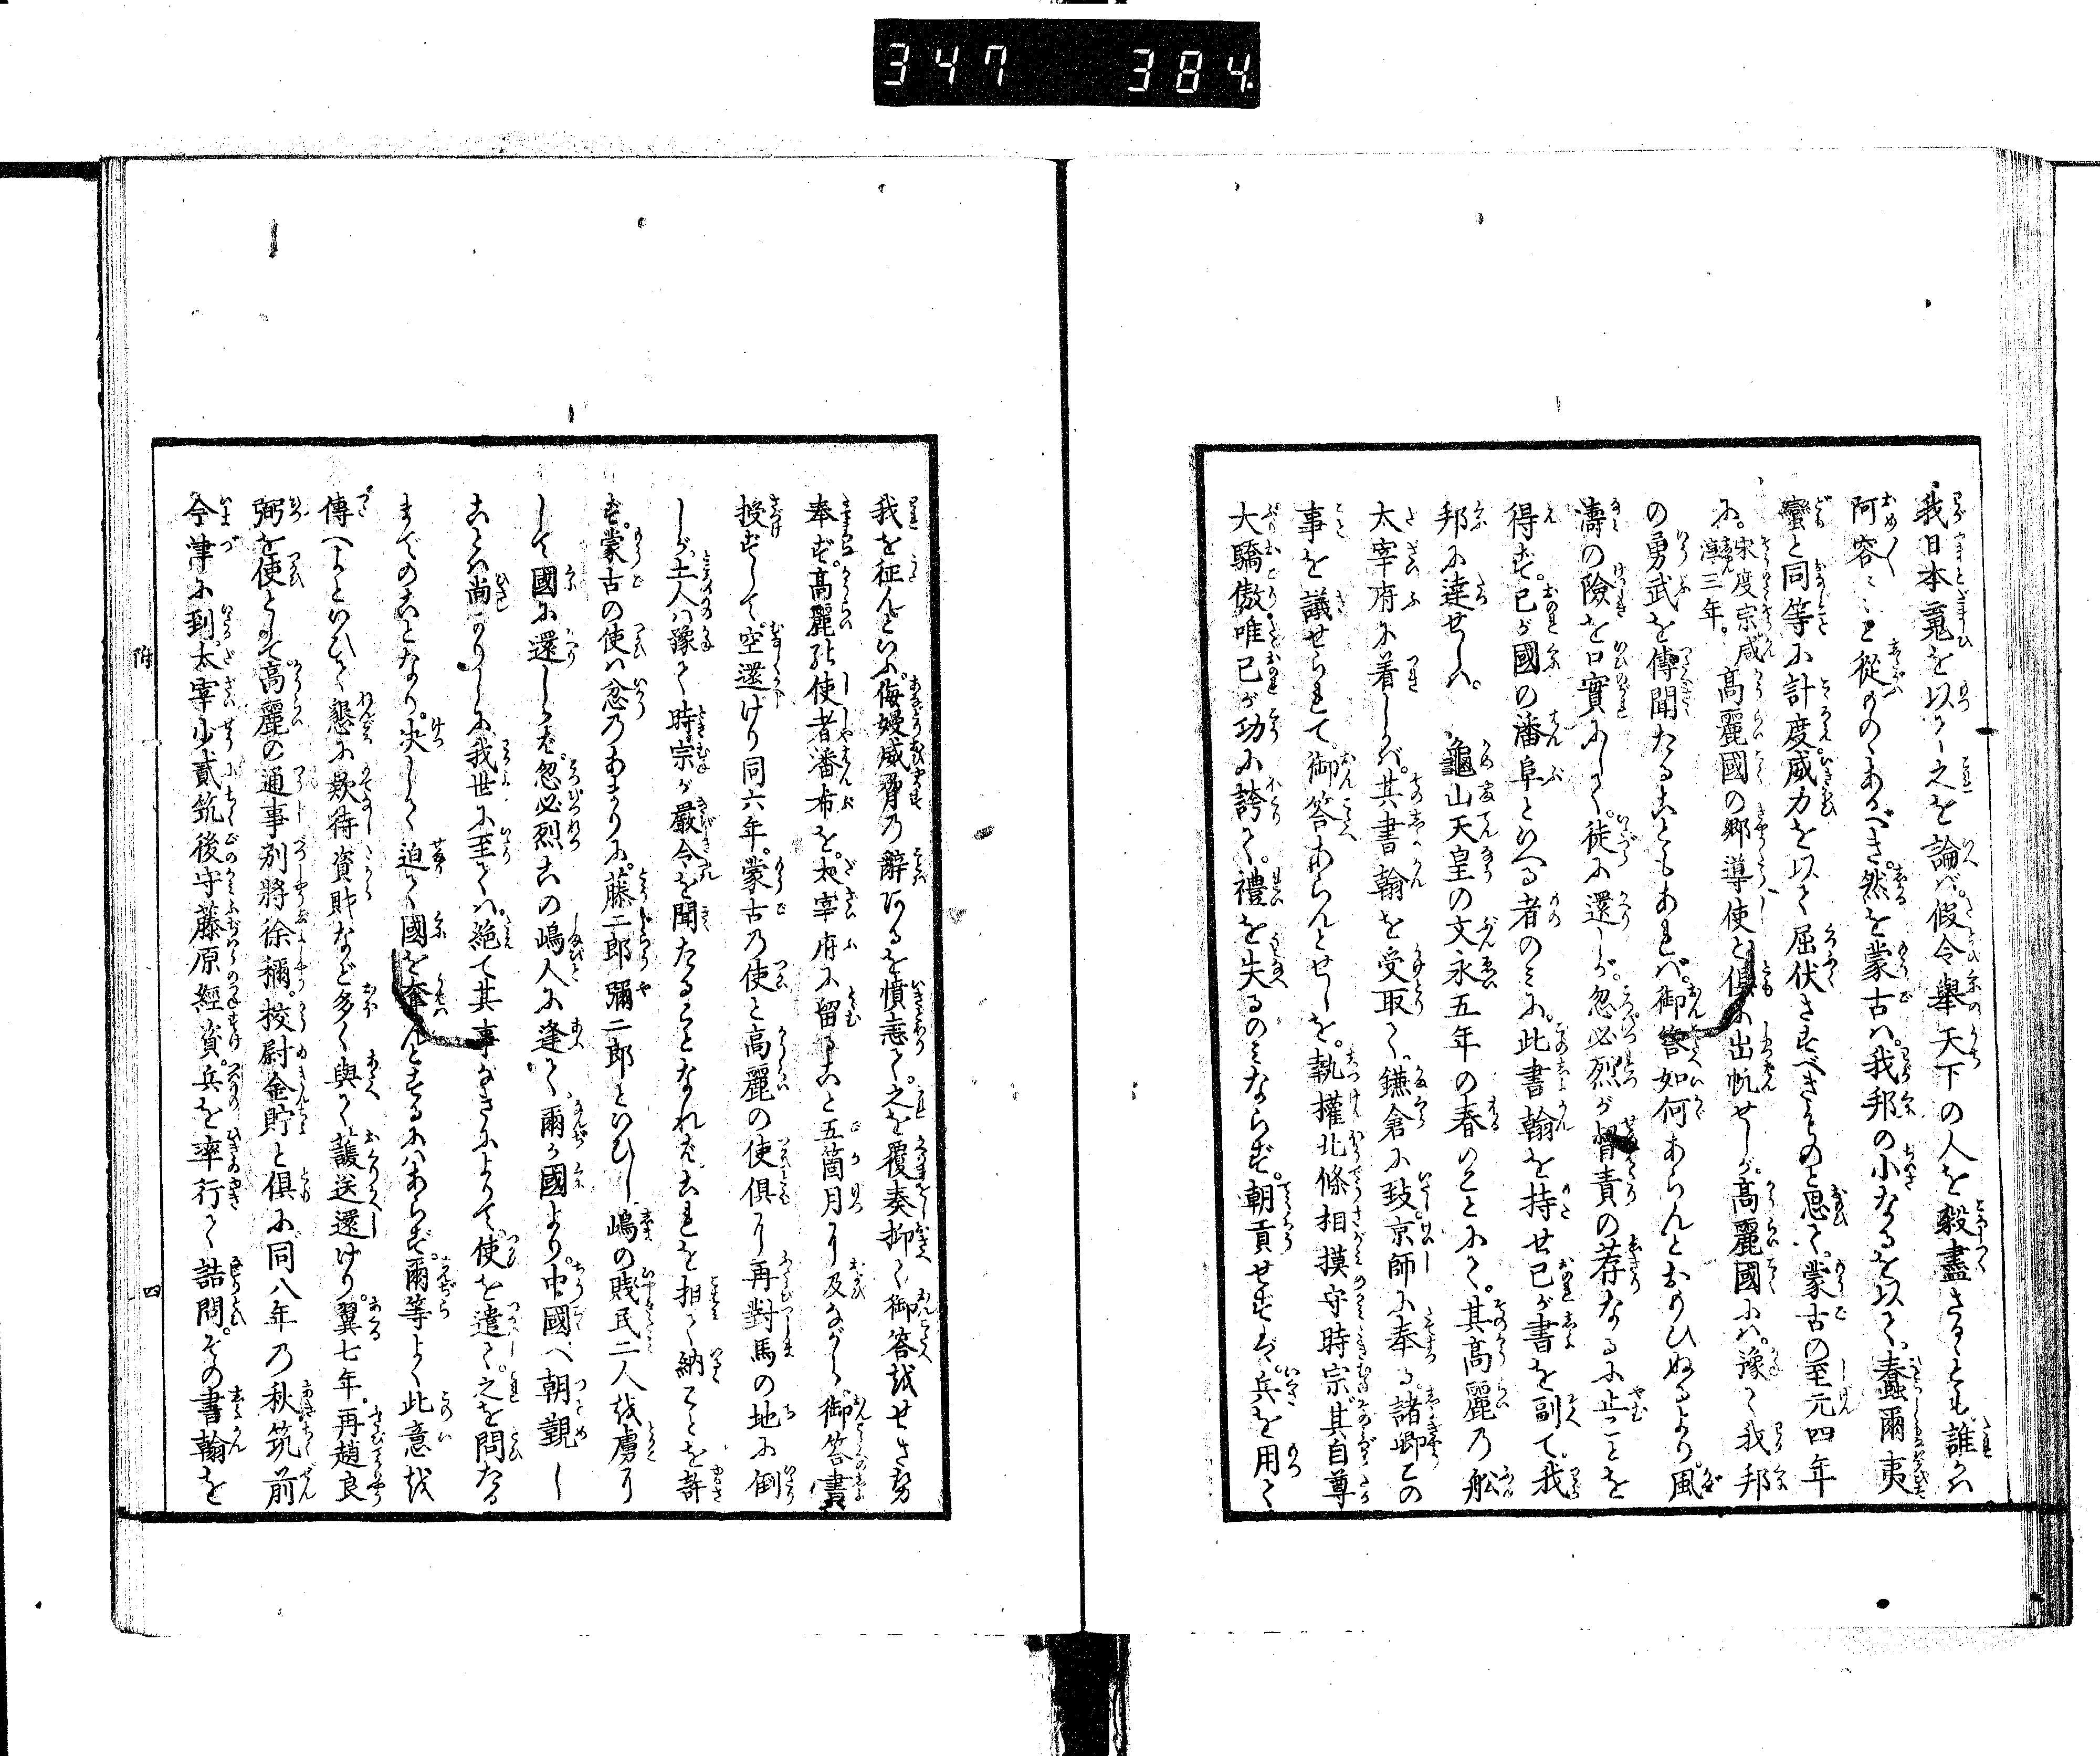 347 384
我日本魂を以て之を論ば。假令舉天下の人を殺盡さるとも誰かハ
阿容〻〻と從ものゝあるべき。然を蒙古ハ。我邦の小なるを以て。蠢爾夷
蠻と同等に計度威力を以て屈伏さすべきものと思て。蒙古の至元四年
に。宋度宗咸淳三年。高麗國の郷導使と俱に出帆せしが。高麗國にハ。豫て我邦
の勇武を傳聞たることもあれバ。御答如何あらんとおもひぬるより。風
濤の險を口實にして。徒に還しが。忽必烈が督責の荐なるに止ことを
得ず。己が國の潘阜といへる者のミに。此書翰を持せ己が書を副て。我
邦に達せしハ。龜山天皇の文永五年の春のことにて。其高麗乃舩
太宰府に着しかバ。其書翰を受取て。鎌倉に致京師に奉る。諸卿この
事を議せられて。御答あらんとせしを。執權北條相摸守時宗。其自尊
大驕傲唯己が功に誇て。禮を失るのミならず。朝貢せずバ。兵を用て
我を征んといふ。侮嫚威脅乃辭あるを憤恚て。之を覆奏抑て御答越せさせ
奉ず。高麗能使者潘布を。太宰府に留ること五箇月に及ながら。御答書
授ずして。空還けり同六年。蒙古乃使と高麗の使俱に再對馬の地に到
しが。土人ハ豫て時宗が嚴令を聞たることなれバ。これを相て納ことを許
ず。蒙古の使ハ忿乃あまりに。藤二郎彌二郎といひし嶋の賤民二人越虜に
して國に還しかバ。忽必烈この嶋人に逢て。爾が國より。中國へ朝覲し
ことハ尚かりしに。我世に至てハ。絶て其事なきによりて。使を遣て。之を問たる
までのことなり。決して迫て國を奪んとするにハあらず。爾等よく此意越
傳へよといひて懇に欵待資財など多く與て護送還けり。翼七年。再趙良
弼を使として高麗の通事別將徐稱。挍尉金貯と俱に同八年乃秋筑前
今津に到。太宰少貳筑後守藤原經資。兵を率行て詰問。その書翰を
附
四